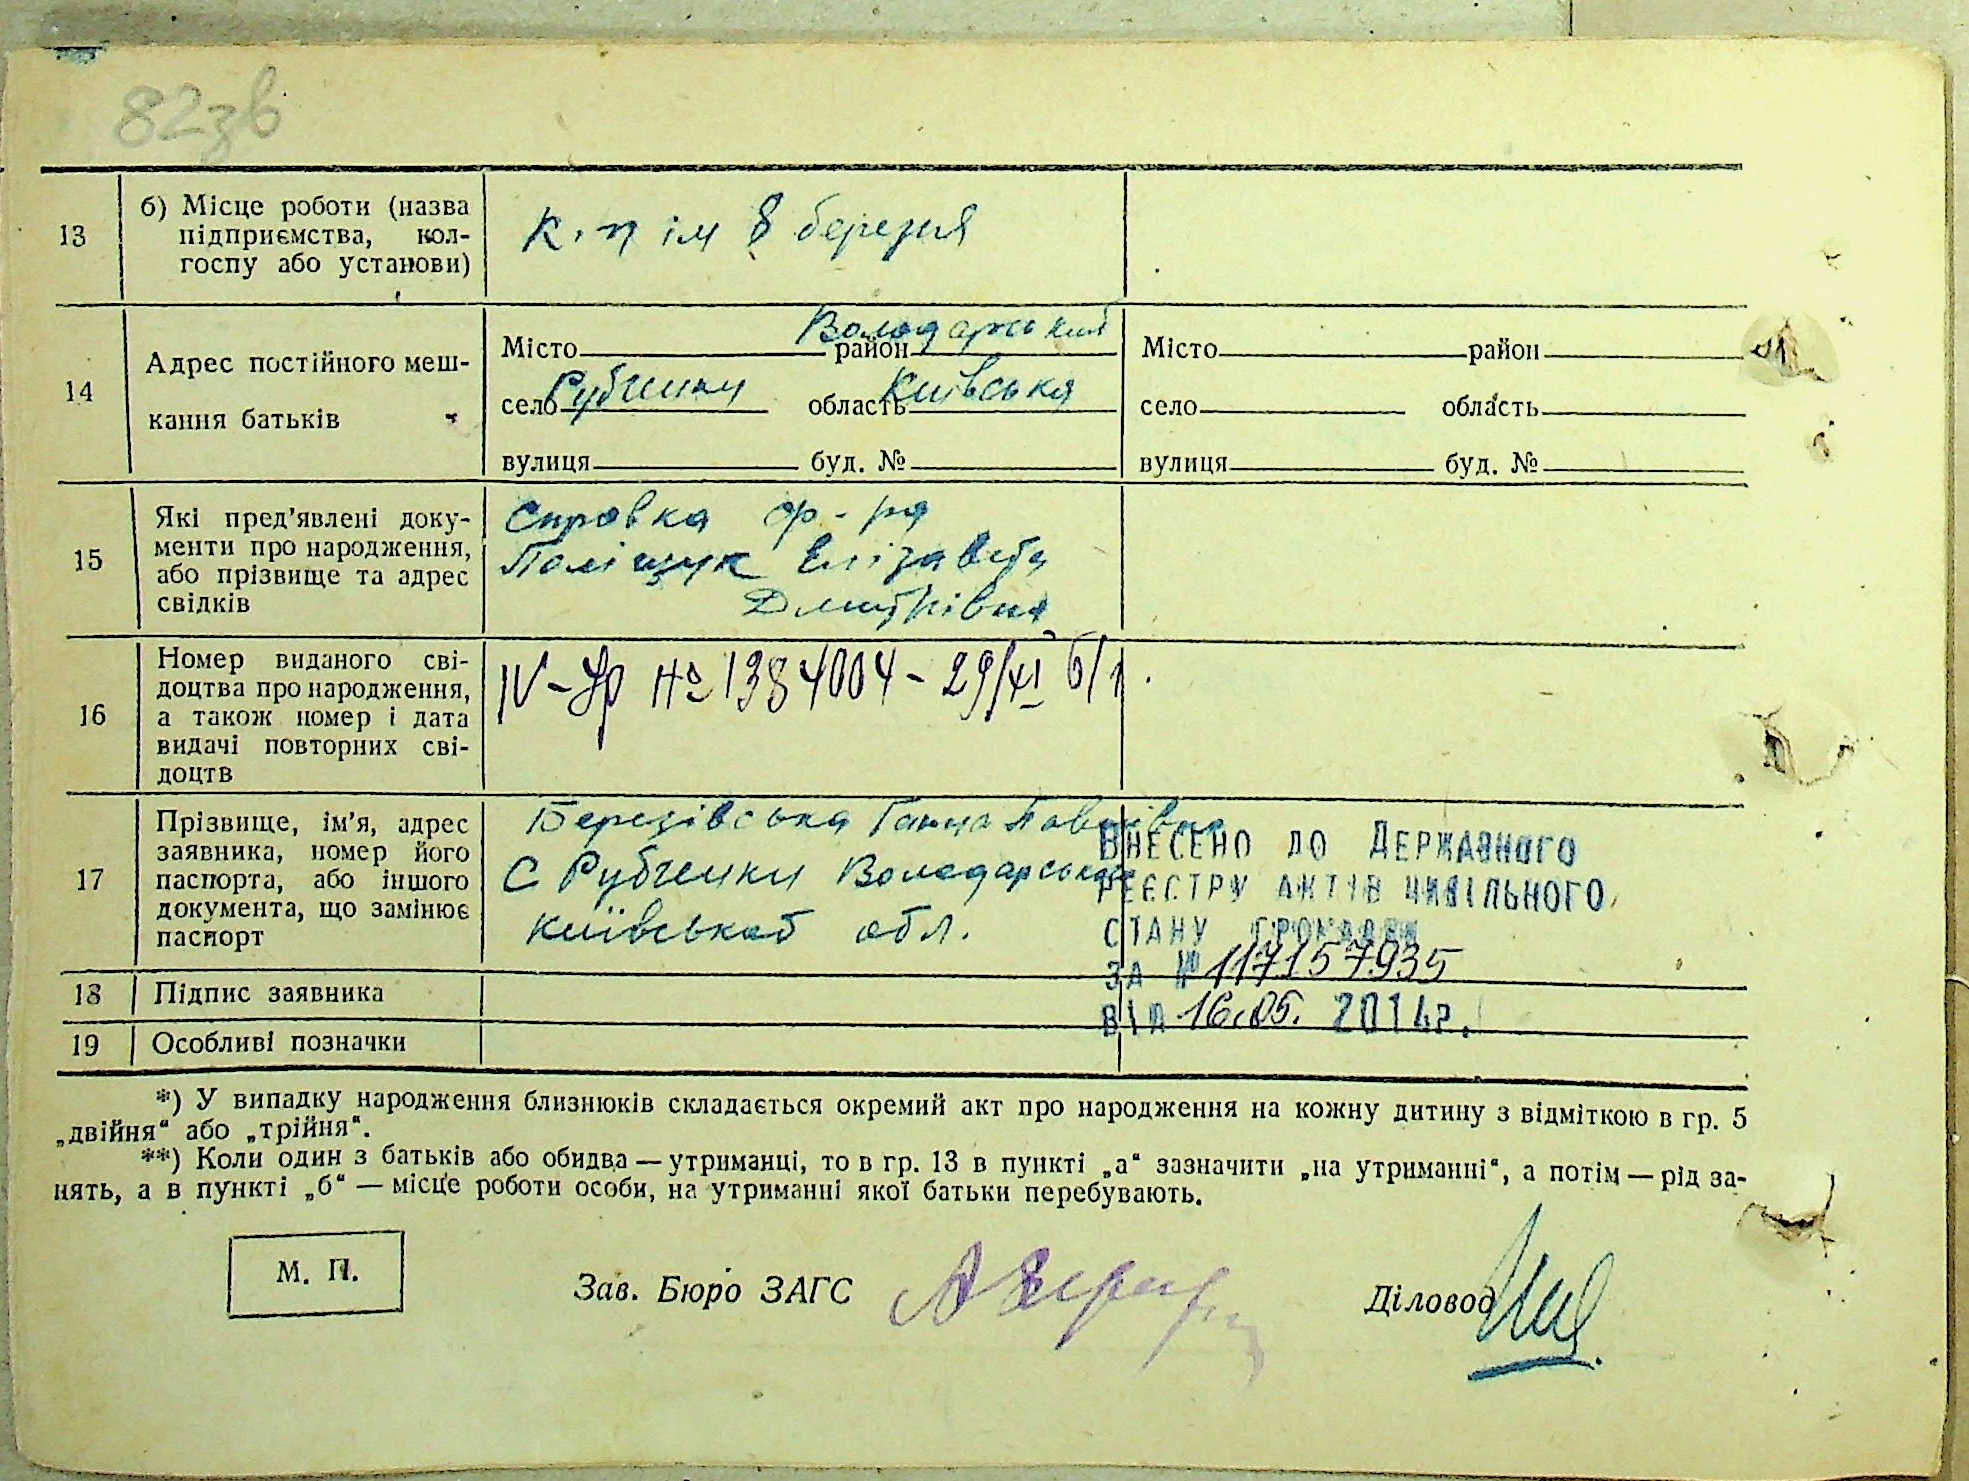 82зв
13
б) Місце роботи (назва
підприємства, кол-
госпу або установи)
к. п ім 8 березня
14
Адрес постійного меш-
кання батьків
Місто район Володарський
село Рубченки область Київська
вулиця буд. №
Місто район
село область
вулиця буд. №
15
Які пред'явлені доку-
менти про народження,
або прізвище та адрес
свідків
Справка
Поліщук Елізавета
Дмитрівна
16
Номер виданого сві-
доцтва про народження,
а також номер і дата
видачі повторних сві-
доцтв
IV - № 1384004 - 29/XI
17
Прізвище, ім'я, адрес
заявника, номер його
паспорта, або іншого
документа, що замінює
паспорт
Березівська Ганна Павлівна
С Рубченки Володарський
Київської обл.
ВНЕСЕНО ДО ДЕРЖАВНОГО
РЕЄСТРУ АКТІВ ЦИВІЛЬНОГО
СТАНУ ГРОМАДЯН
ЗА № 117157935
ВІД 16.05. 2014р.
18
Підпис заявника
19
Особливі позначки
*) У випадку народження близнюків складається окремий акт про народження на кожну дитину з відміткою в гр. 5
„двійня“ або „трійня“.
**) Коли один з батьків або обидва — утриманці, то в гр. 13 в пункті „а“ зазначити „на утриманні“, а потім — рід за-
нять, а в пункті „б“ — місце роботи особи, на утриманні якої батьки перебувають.
М. П.
Зав. Бюро ЗАГС
Діловод